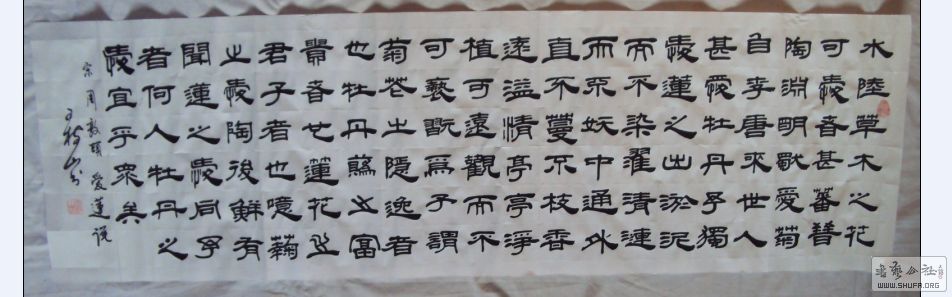 水陸草木之花
可愛者甚蕃晉
陶淵明獨愛菊
自李唐來世人
甚愛牡丹予獨
愛蓮之出淤泥
而不染濯清漣
而不妖中通外
直不蔓不枝香
遠溢清亭亭淨
植可遠觀而不
可褻翫焉予謂
菊花之隱逸者
也牡丹蘤之富
貴者也蓮花之
君子者也噫菊
之愛陶後鮮有
聞蓮之愛同予
者何人牡丹之
愛宜乎眾矣
宋周敦頤愛蓮說
WWW.SHUFA.ORG